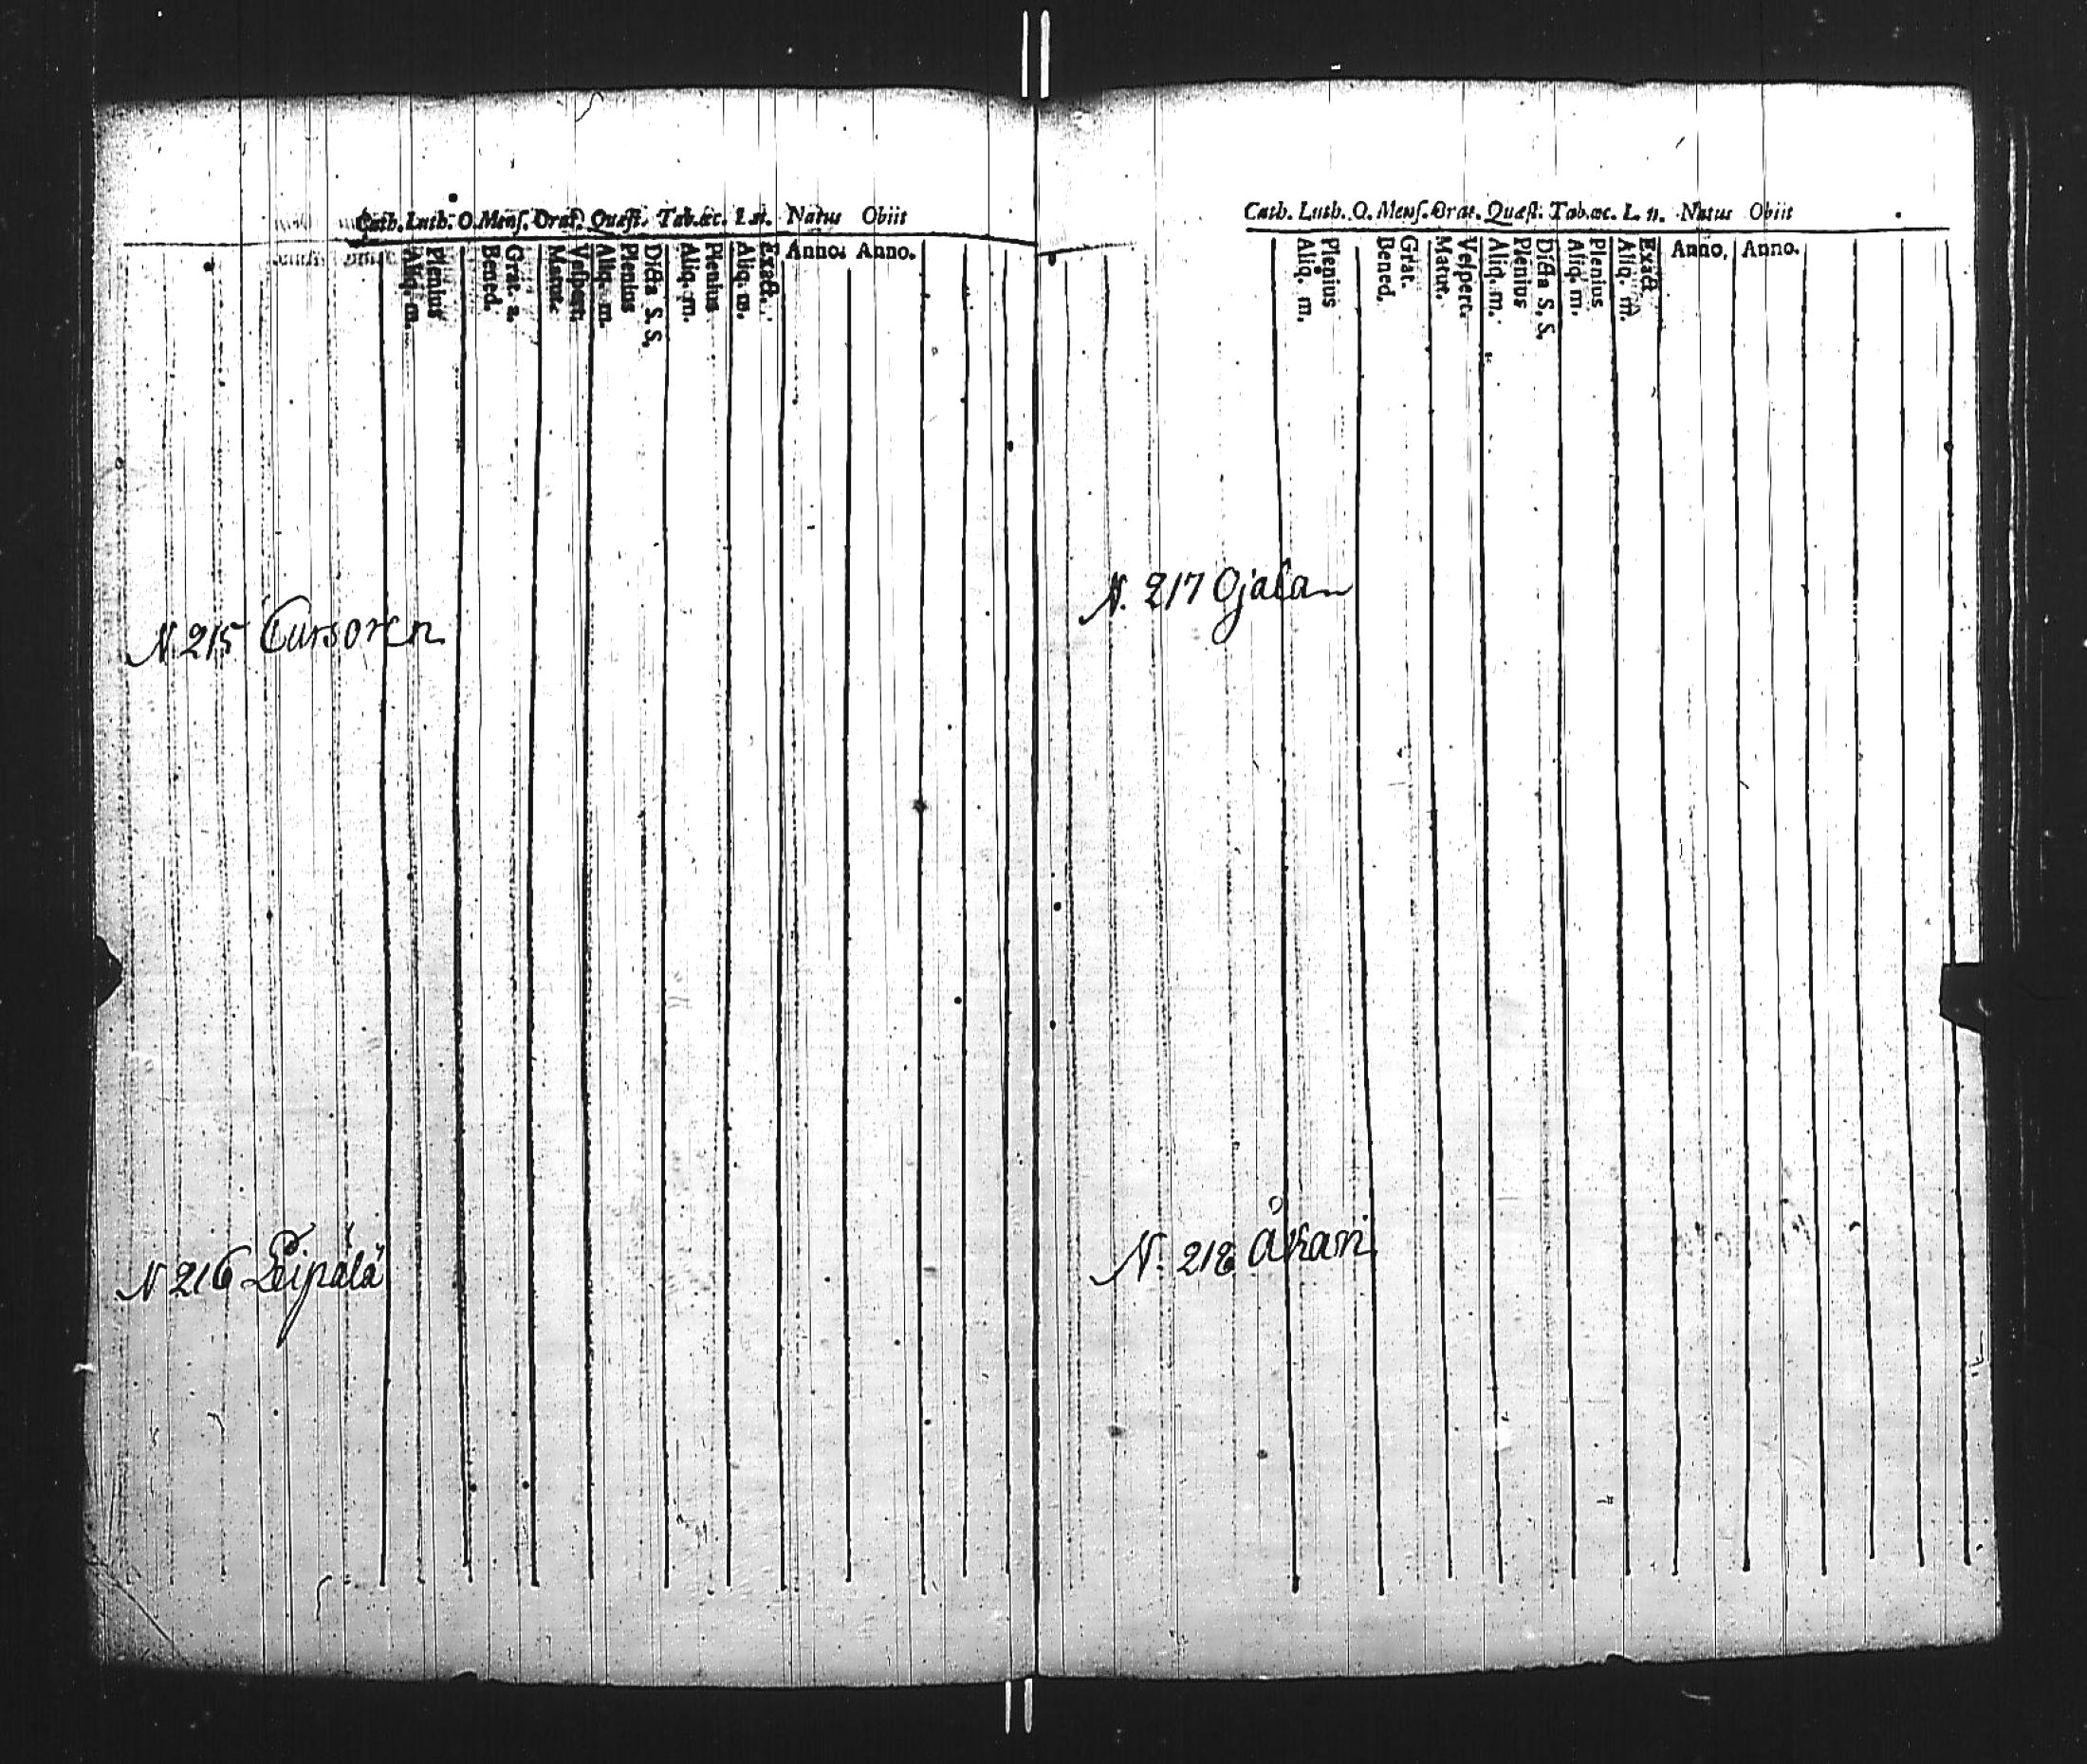 Cath. Luth. O. Menſ. Orat. Quæſt. Tab. œc. L. n. Natus Obiit
Aliq. m.
Plenius
Bened.
Grat. a.
Matut.
Veſpert.
Aliq. m.
Plenius
Dicta S. S.
Aliq. m.
Plenius
Aliq. m.
Exact.
Anno. Anno.
N 215 Cursoren
N 216 Peipälä
Cath. Luth. O. Menſ. Orat. Quæſt. Tab. œc. L. n. Natus Obiit
Aliq. m.
Plenius
Bened.
Grat.
Matut.
Veſpert.
Aliq. m.
Plenius
Dicta S. S.
Aliq. m.
Plenius
Aliq. m.
Exact
Anno, Anno.
N. 217 Ojalan
N. 218 Åkari